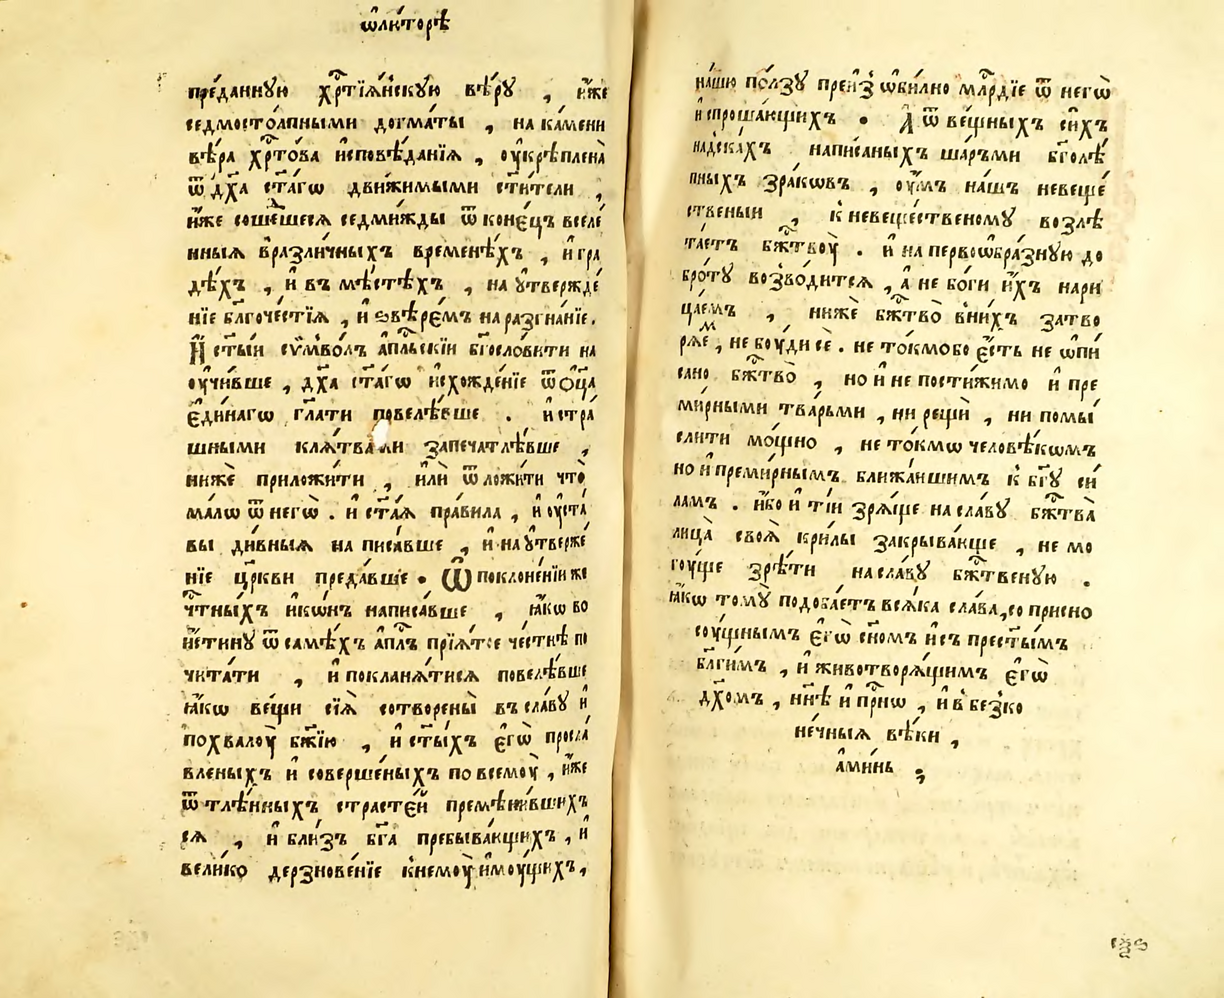 ѡ҆лі́кторѣ
преда́нную хрⷭ҇тїѧ́нскую вѣ́ру , и҆́же
седмосто́лпными догма́ты , на ка́мени
вѣ́ра хрⷭ҇то́ва и҆сповѣ́данїѧ , оу҆крѣплена̀
ѿ дх҃а ст҃а́гѡ дви́жимыми ст҃и́тели ,
и҆́же соше́шесѧ седми́жды ѿ коне́цъ вселе́
нныѧ вразли́чныхъ времене́хъ , и҆ гра
дѣ́хъ , и҆ въ мѣ́стѣхъ , на у҆твержде́
нїе бл҃гоче́стїѧ , и҆ ѕвѣре́мъ на разгна́нїе .
И҆ ст҃ы́и сѷ́мвⷪ҇лъ а҆пⷭ҇льскїи бг҃осло́вити на
оу҆чи́вше , дх҃а ст҃а́гѡ и҆схожде́нїе ѿ ѻц҃а̀
є҆ди́нагѡ гл҃а́ти повелѣ́вше . и҆ стра́
шными клѧ́твами запечатлѣ́вше ,
нижѐ приложи́ти , и҆лѝ ѿложи́ти что̀
ма́лѡ ѿ негѡ̀ . и҆ ст҃а́ѧ пра́вила , и҆ оу҆ста́
вы ди́вныѧ написа́вше , и҆ на у҆тверже́
нїе цр҃кви преда́вше . Ѿ поклоне́нїи же
чтⷭ҇ныхъ и҆ко́нъ написа́вше , ꙗ҆́кѡ во
и҆́стину ѿ самѣ́хъ а҆пⷭ҇лъ прїѧ́тсе че́стнѣ по
чита́ти , и҆ поклана́тисѧ повелѣ́вше
ꙗ҆́кѡ ве́щи сїѧ̀ сотворены̀ въ сла́ву и҆
похвалоу̀ бж҃їю , и҆ ст҃ы́хъ є҆гѡ̀ просла́
вленыхъ и҆ соверше́ныхъ по всемоу̀ , и҆́же
ѿ тлѣ́нныхъ страсте́й премѣни́вшихъ
сѧ , и҆ бли́зъ бг҃а пребыва́ющихъ , и҆
вели́ко дерзнове́нїе к немоу̀ и҆моу́щихъ ,
на́шю по́лзу преи҆з̾ѡби́лно млⷭ҇рдїе ѿ негѡ̀
и҆спроша́ющихъ . А҆ ѿ ве́щныхъ си́хъ
на́дска́хъ напи́саныхъ ша́ръми бг҃олѣ́
пныхъ зра́кѡвъ , оу҆́мъ на́шъ невеще́
ственыи , к невеще́ственому возлѣ
та́етъ бжⷭ҇твоу̀ . и҆ на первоѡбра́зную до
бро́ту возво́дитсѧ , а҆ не бо́ги и҆́хъ нари
ца́емъ , нижѐ бжⷭ҇тво̀ в ни́хъ затво
рѧ́еⷨ , не бо́уди сѐ . не то́кмобо є҆́сть не ѡ҆пи́
сано бжⷭ҇тво̀ , но и҆ не пости́жимо и҆ пре
ми́рными тва́рьми , ни рещѝ , ни помы́
слити мо́щно , не то́кмѡ человѣ́кѡмъ
но и҆ преми́рнымъ ближа́ишимъ к бг҃у си́
ламъ . и҆́бо и҆ ті́и зрѧ́ще на сла́ву бжⷭ҇тва̀
лица̀ своѧ̀ кри́лы закрыва́юще , не мо
гоу́ще зрѣ́ти на сла́ву бжⷭ҇твеную .
ꙗ҆́кѡ тому̀ подоба́етъ всѧ́ка сла́ва , со присно
соу́щнымъ є҆гѡ̀ сн҃омъ и҆ съ прест҃ы́мъ
бл҃ги́мъ , и҆ животворѧ́щимъ є҆гѡ̀
дх҃омъ , нн҃ѣ и҆ прⷭ҇нѡ , и҆ в безко
не́чныѧ вѣ́ки ,
а҆ми́нь ;